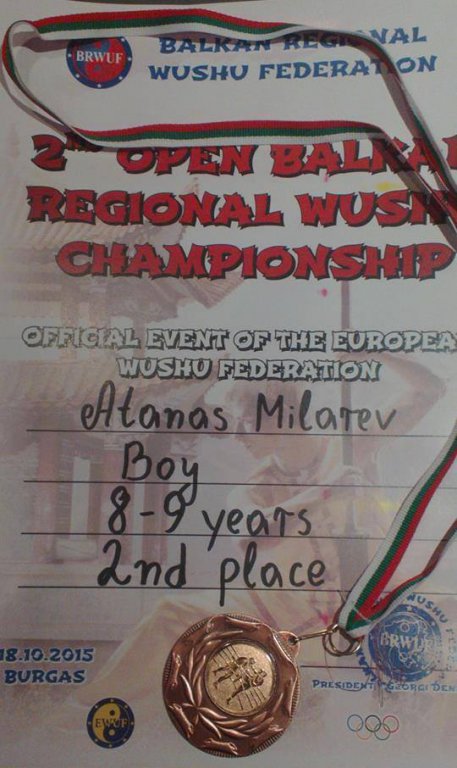 BRWUF
BALKAN REGIONAL
WUSHU FEDERATION
2ND OPEN BALKA
REGIONAL WUSH
CHAMPIONSHIP
OFFICIAL EVENT OF THE EUROPEA
WUSHU FEDERATION
Atanas Milatev
Boy
8-9 years
2nd place
18.10.2015
BURGAS
EWUF
WUSHU FE
BRWU
PRESIDENT: GEORGI DEN